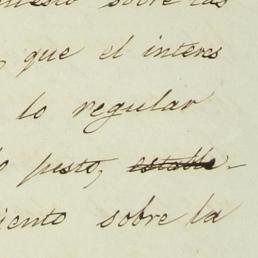 sobre las
que el interes
lo regular
justo, estable-
iento sobre la